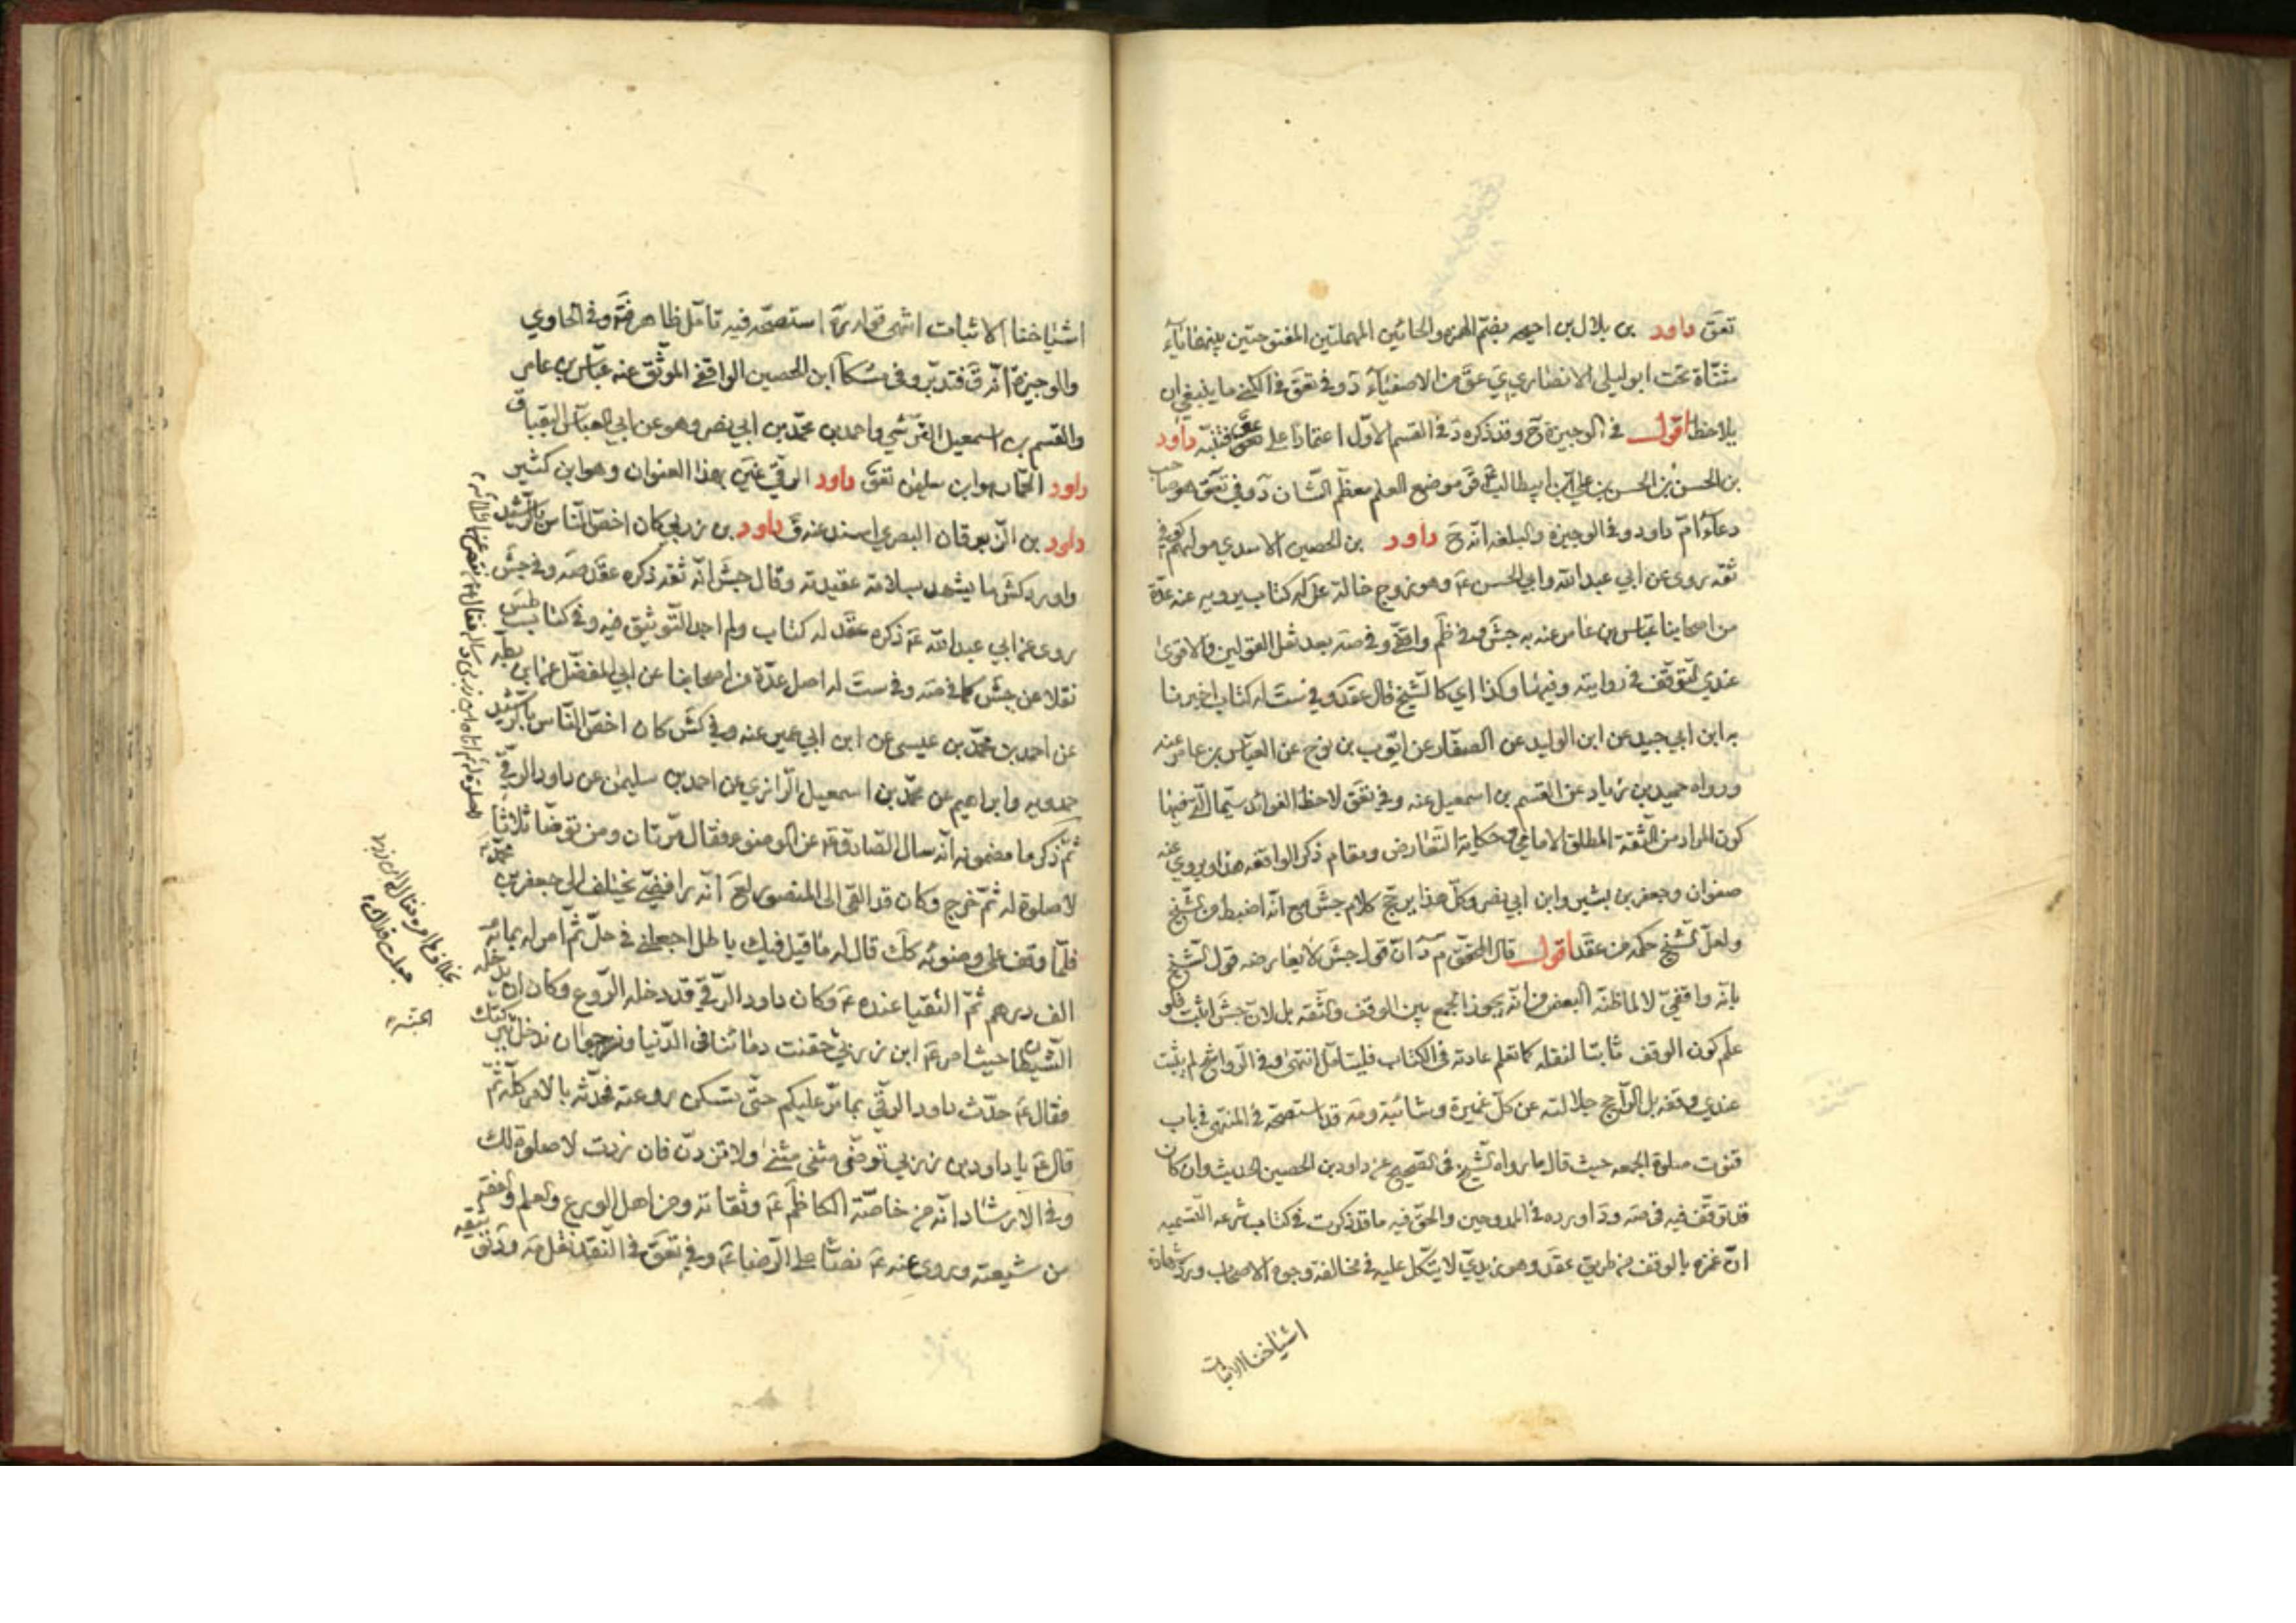 تعق داود بن بلال بن احيحه بضم الهمزه والحائين المهملتين المفتوحتين بينهما ياء
مثناة تحت ابو ليلى الانصاري ي عق من الاصفياء د وفي تعق في الكنى ما ينبغي ان
يلاحظ اقول في الوجيزة ح وقد ذكره د في القسم الاول اعتمادا على عق فتنبه داود
بن الحسن بن الحسن بن علي بن ابيطالب ق موضع العلم معظم الشان د وفي تعق هو صاحب
دعاء ام داود وفي الوجيزة والبلغه انه ح داود بن الحصين الاسدي مولاهم كوفي
ثقه روى عن ابي عبد الله وابي الحسن ع وهو زوج خالة علي له كتاب يرويه عنه عدة
من اصحابنا عباس بن عامر عنه به جش وفي ظم واقفي وفي صه بعد نقل القولين والاقوى
عندي التوقف في روايته وفيها وكذا اي كالشيخ قال عقد وفي ست له كتاب اخبرنا
به ابن ابي جيد عن ابن الوليد عن الصفار عن ايوب بن نوح عن العباس بن عامر عنه
ورواه حميد بن زياد عن القسم بن اسمعيل عنه وفي تعق لاحظ الفوائد سيما التي فيها
كون المراد من الثقة المطلق الامامي وحكاية التعارض ومقام ذكر الواقفه هذا ويروي عنه
صفوان وجعفر بن بشير وابن ابي نصر وكل هذا يرجح كلام جش مع انه اضبط من الشيخ
ولعل الشيخ حكمه من عقد اقول قال المحقق م د ان قول جش لا يعارضه قول الشيخ
بانه واقفي لا لما ظنه البعض من انه يجوز الجمع بين الوقف والثقه بل لان جش اثبت فلو
علم كون الوقف ثابتا لنقله كما تعلم عادته في الكتاب فليتامل انتهى وفي الرواشح لم يثبت
عندي وقفه بل الراجح جلالته عن كل غميزة وشائبة ومه قد استصحه في المنتهى في باب
قنوت صلوة الجمعه حيث قال ما رواه الشيخ في الصحيح عن داود بن الحصين الحديث وان كان
قد توقف فيه في صه ود اورده في الممدوحين والحق فيه ما قد ذكرت في كتاب شرعه التسميه
ان غمزه بالوقف من طريق عقد وهو زيدي لا يتكل عليه في مخالفة وجوه الاصحاب ورد شهادة
اشياخنا الاثبات
اشياخنا الاثبات انتهى قوله ره استصحه فيه تامل ظاهر فته وفي الحاوي
والوجيزة انه ق فتدبر وفي مشكا ابن الحصين الواقفي الموثق عنه عباس بن عامر
والقسم بن اسمعيل القرشي واحمد بن محمد بن ابي نصر وهو عن ابي العباس البقباق
داود الحمار هو ابن سليمن تعق داود الرقي غني بهذا العنوان وهو ابن كثير
داود بن الزبرقان البصري اسند عنه ق داود بن زربي كان اخص الناس بالرشيد
واورد كش ما يشهد بسلامة عقيدته وقال جش انه ثقه ذكره عقد صه وفي جش
روى عن ابي عبد الله ع ذكره عقد له كتاب ولم اجد التوثيق فيه وفي كتاب طس
نقلا عن جش كما في صه وفي ست له اصل عدة من اصحابنا عن ابي المفضل عن ابن بطه
عن احمد بن محمد بن عيسى عن ابن ابي عمير عنه وفي كش كان اخص الناس بالرشيد
حمدويه وابراهيم عن محمد بن اسمعيل الرازي عن احمد بن سليمن عن داود الرقي
ثم ذكر ما مضمونه انه سال الصادق ع عن الوضوء فقال مرتان ومن توضا ثلاثا
لا صلوة له ثم خرج وكان قد القي الى المنصور لع انه رافضي يختلف الى جعفر بن
فلما وقف على وضوئه كك قال له ما قيل فيك باطل اجعلني في حل ثم امر له بمائة
الف درهم ثم التقيا عنده ع وكان داود الرقي قد دخله الروع وكان ان يدخله
الشيطان حيث امر ع ابن زربي حقنت دمائنا في الدنيا ونرجوا ان ندخل بك الجنة
فقال ع حدث داود الرقي بما مر عليكم حتى تسكن روعته فحدثه بالامر كله ثم
قال ع يا داود بن زربي توضئ مثنى مثنى ولا تزدن فان زدت لا صلوة لك
وفي الارشاد انه من خاصة الكاظم ع وثقاته ومن اهل الورع والعلم والفقه
من شيعته وروى عنه ع نصا على الرضا ع وفي تعق في النقد نقل صه ود توثيقه